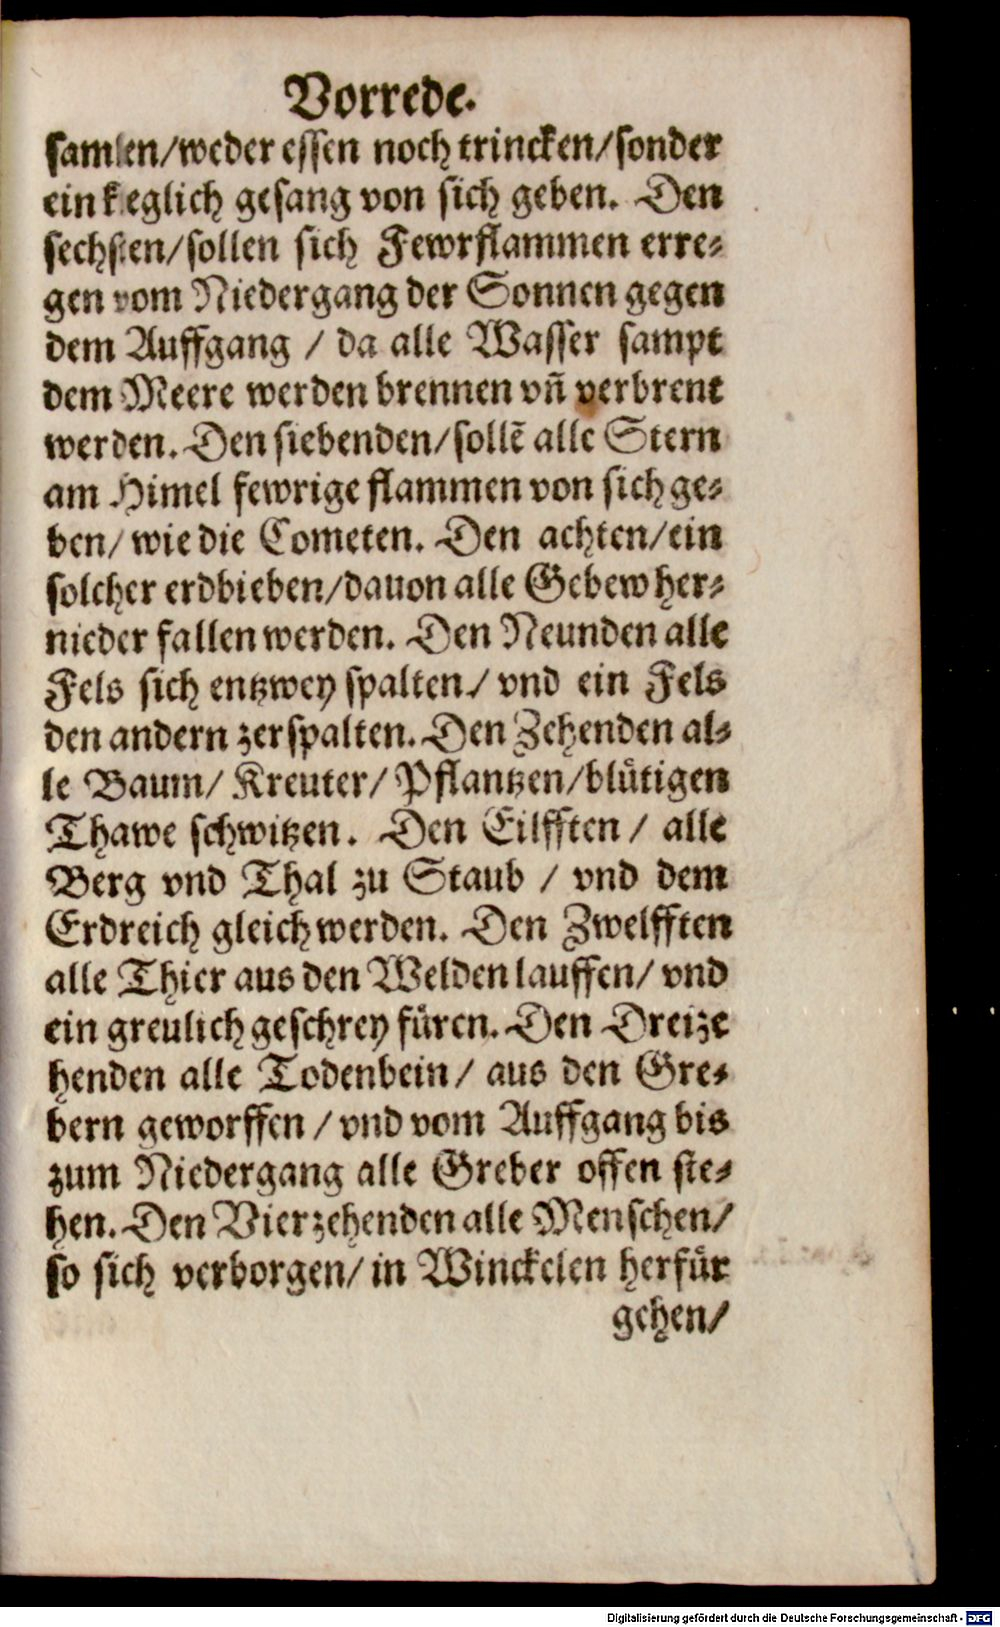 Vorrede.
samlen/weder essen noch trincken/sonder
ein kleglich gesang von sich geben. Den
sechsten/sollen sich Fewrflammen erre⸗
gen vom Niedergang der Sonnen gegen
dem Auffgang / da alle Wasser sampt
dem Meere werden brennen vñ verbrent
werden. Den siebenden/sollē alle Stern
am Himel fewrige flammen von sich ge⸗
ben/ wie die Cometen. Den achten/ein
solcher erdbieben/dauon alle Gebew her⸗
nieder fallen werden. Den Neunden alle
Fels sich entzwey spalten/ vnd ein Fels
den andern zerspalten. Den Zehenden al⸗
le Baum/ Kreuter/ Pflantzen/blütigen
Thawe schwitzen. Den Eilfften / alle
Berg vnd Thal zu Staub / vnd dem
Erdreich gleich werden. Den Zwelfften
alle Thier aus den Welden lauffen/ vnd
ein greulich geschrey füren. Den Dreize
henden alle Todenbein/ aus den Gre⸗
bern geworffen / vnd vom Auffgang bis
zum Niedergang alle Greber offen ste⸗
hen. Den Vierzehenden alle Menschen/
so sich verborgen/ in Winckelen herfür
gehen/
Digitalisierung gefördert durch die Deutsche Forschungsgemeinschaft - DFG